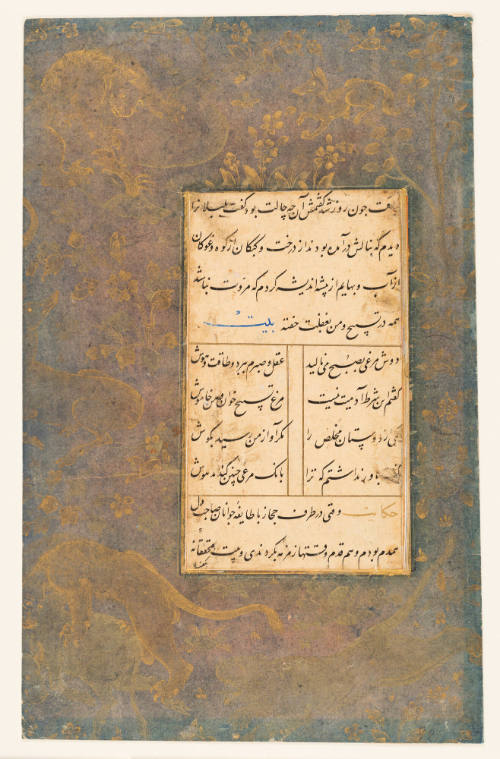 یافت چون روز شد گفتمش آن چه حالت بود گفت بلبلانرا
دیدم که بنالش درآمده بودند از درخت و کبکان از کوه و غوکان
از آب و بهایم از بیشه اندیشه کردم که مروت نباشد
همه در تسبیح و من بغفلت خفته بیت
دوش مرغی بصبح می نالید عقل و صبرم ببرد و طاقت و هوش
گفتم این شرط آدمیت نیست مرغ تسبیح خوان و من خاموش
یکی از دوستان مخلص را مگر آواز من رسید بگوش
گفت باور نداشتم که ترا بانک مرغی چنین کند مدهوش
حکایت وقتی در طرف حجاز با طایفه جوانان صاحب دل
همدم بودم و هم قدم وقتها زمزمه بکردندی و بیت محققانه